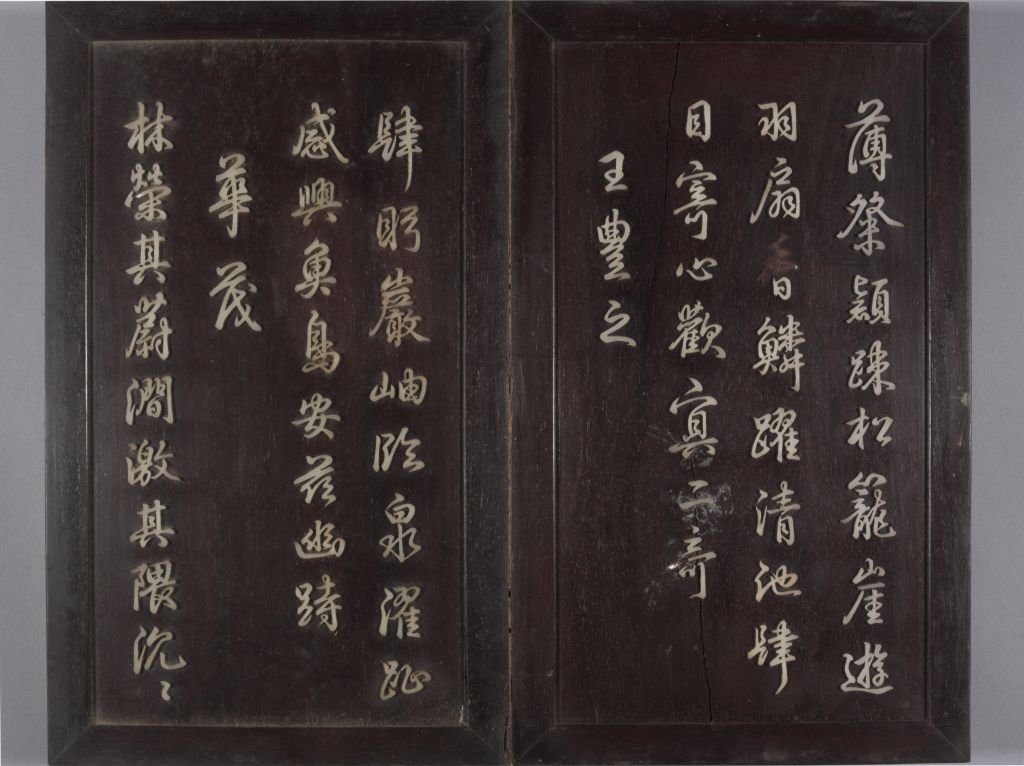 薄粲穎踈松籠崖遊
羽扇日鱗躍清池肆
目寄心歡冥二奇
王豐之
肆眄巖岫臨泉濯趾
感興魚鳥安茲幽跱
華茂
林榮其蔚澗激其隈汎〻